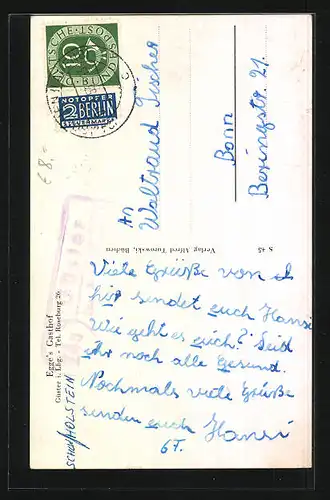 DEUTSCHE BUNDESPOST
10
NOTOPFER
2 BERLIN
STEUERMARKE
€ 8,-
An
Waltraud Fischer
Bonn
Beringstr. 21.
S 45
Verlag Alfred Turowski, Büdern
Egge's Gasthof
Güster i. Lbg. - Tel. Roseburg 26
SCHL/HOLSTEIN
Viele Grüße von
hir sendet euch Hansi
Wie geht es euch? Seid
ihr noch alle Gesund.
Nochmals viele Grüße
senden euch Hansi
67.